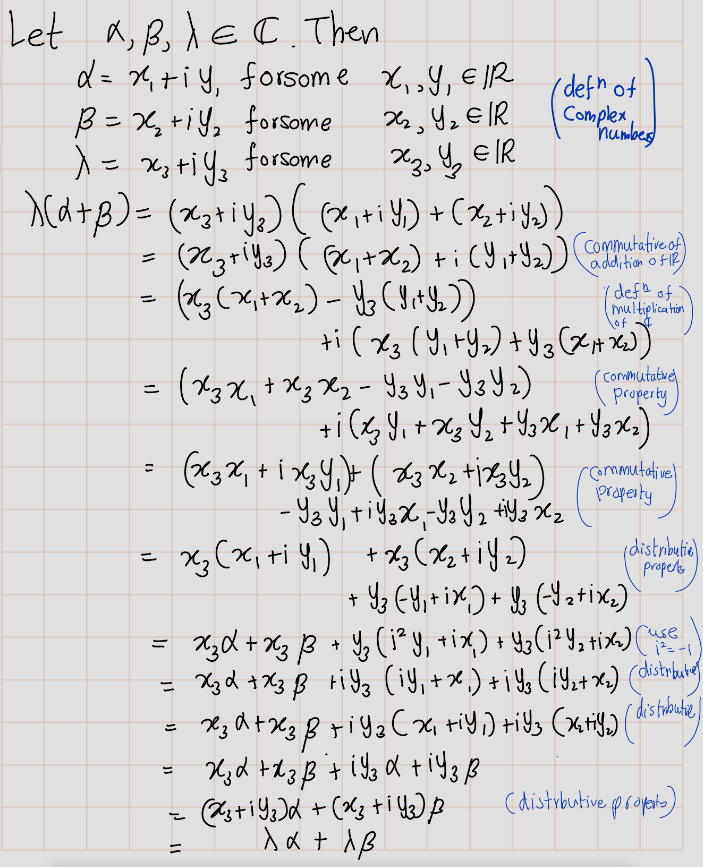 Let α, β, λ ∈ ℂ. Then
α = x₁ + i y₁ for some x₁, y₁ ∈ ℝ
β = x₂ + i y₂ for some x₂, y₂ ∈ ℝ
λ = x₃ + i y₃ for some x₃, y₃ ∈ ℝ
(defⁿ of
Complex
numbers)
λ(α+β) = (x₃ + i y₃) ( (x₁ + i y₁) + (x₂ + i y₂) )
= (x₃ + i y₃) ( (x₁ + x₂) + i (y₁ + y₂) ) (commutative of
addition of ℝ)
= (x₃ (x₁ + x₂) − y₃ (y₁ + y₂)) (defⁿ of
multiplication
of ℂ)
+ i ( x₃ (y₁ + y₂) + y₃ (x₁ + x₂) )
= (x₃ x₁ + x₃ x₂ − y₃ y₁ − y₃ y₂) (commutative
property)
+ i (x₃ y₁ + x₃ y₂ + y₃ x₁ + y₃ x₂)
= (x₃ x₁ + i x₃ y₁) + ( x₃ x₂ + i x₃ y₂) (commutative
property)
− y₃ y₁ + i y₃ x₁ − y₃ y₂ + i y₃ x₂
= x₃ (x₁ + i y₁) + x₃ (x₂ + i y₂) (distributive
property)
+ y₃ (−y₁ + i x₁) + y₃ (−y₂ + i x₂)
= x₃ α + x₃ β + y₃ (i² y₁ + i x₁) + y₃ (i² y₂ + i x₂) (use
i² = −1)
= x₃ α + x₃ β + i y₃ (i y₁ + x₁) + i y₃ (i y₂ + x₂) (distributive)
= x₃ α + x₃ β + i y₃ (x₁ + i y₁) + i y₃ (x₂ + i y₂) (distributive)
= x₃ α + x₃ β + i y₃ α + i y₃ β
= (x₃ + i y₃) α + (x₃ + i y₃) β (distrbutive property)
= λ α + λ β